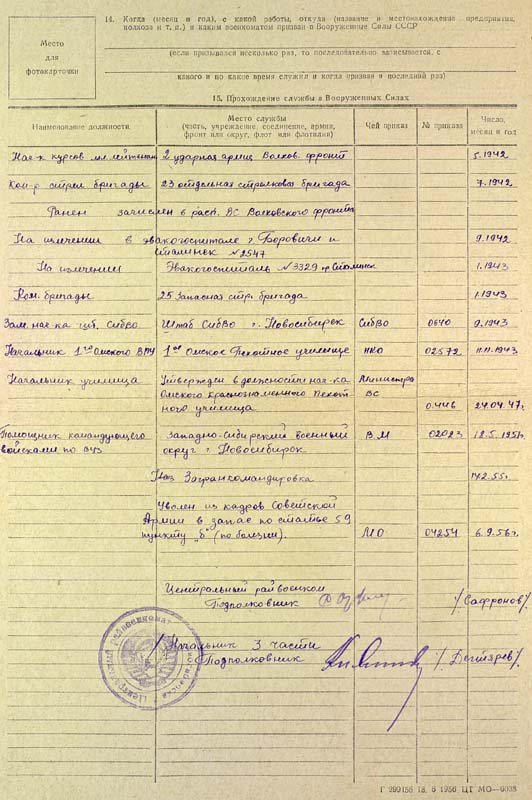 14. Когда (месяц и год), с какой работы, откуда (название и местонахождение предприятия,
колхоза и т. п.) и каким военкоматом призван в Вооруженные Силы СССР
Место
для
фотокарточки
(если призывался несколько раз, то последовательно записывается, с
какого и по какое время служил и когда призван в последний раз)
15. Прохождение службы в Вооруженных Силах
Наименование должности
Место службы
(часть, учреждение, соединение, армия,
фронт или округ, флот или флотилия)
Чей приказ
№ приказа
Число,
месяц и год
Нач-к курсов мл. лейтенант 2 ударная армия Волхов. фронт 5.1942
Ком-р стрел. бригады 23 отдельная стрелковая бригада 7.1942
Ранен зачислен в расп. ВС Волховского фронта
На излечении в эвакогоспитале г. Боровичи и 9.1942
Сталинск №2547
На излечении Эвакогоспиталь №3329 гр Сталинск 1.1943
Ком. бригады 25 Запасная стр. бригада 1.1943
Зам. нач-ка шт. СибВО Штаб СибВО г. Новосибирск СибВО 0640 9.1943
Начальник 1го Омского ВПУ 1ое Омское Пехотное училище НКО 02572 11.11.1943
Начальник училища Утвержден в должности нач-ка Министра
Омского Краснознаменного Пехот ВС
ного училища 0.446 24.04.47г.
Помощник командующего Западно-Сибирский военный В.М 02023 18.5.1951г.
войсками по ВУЗ округ г. Новосибирск
Загранкомандировка
Уволен из кадров Советской
Армии в запас по статье 59
пункту „б" (по болезни). МО 04254 6.9.56г.
Центральный райвоенком
Подполковник /Сафронов/
/Начальник 3 части
Подполковник /Дегтярев/
Г 299156 18. 6 1956 ЦТ МО—6038